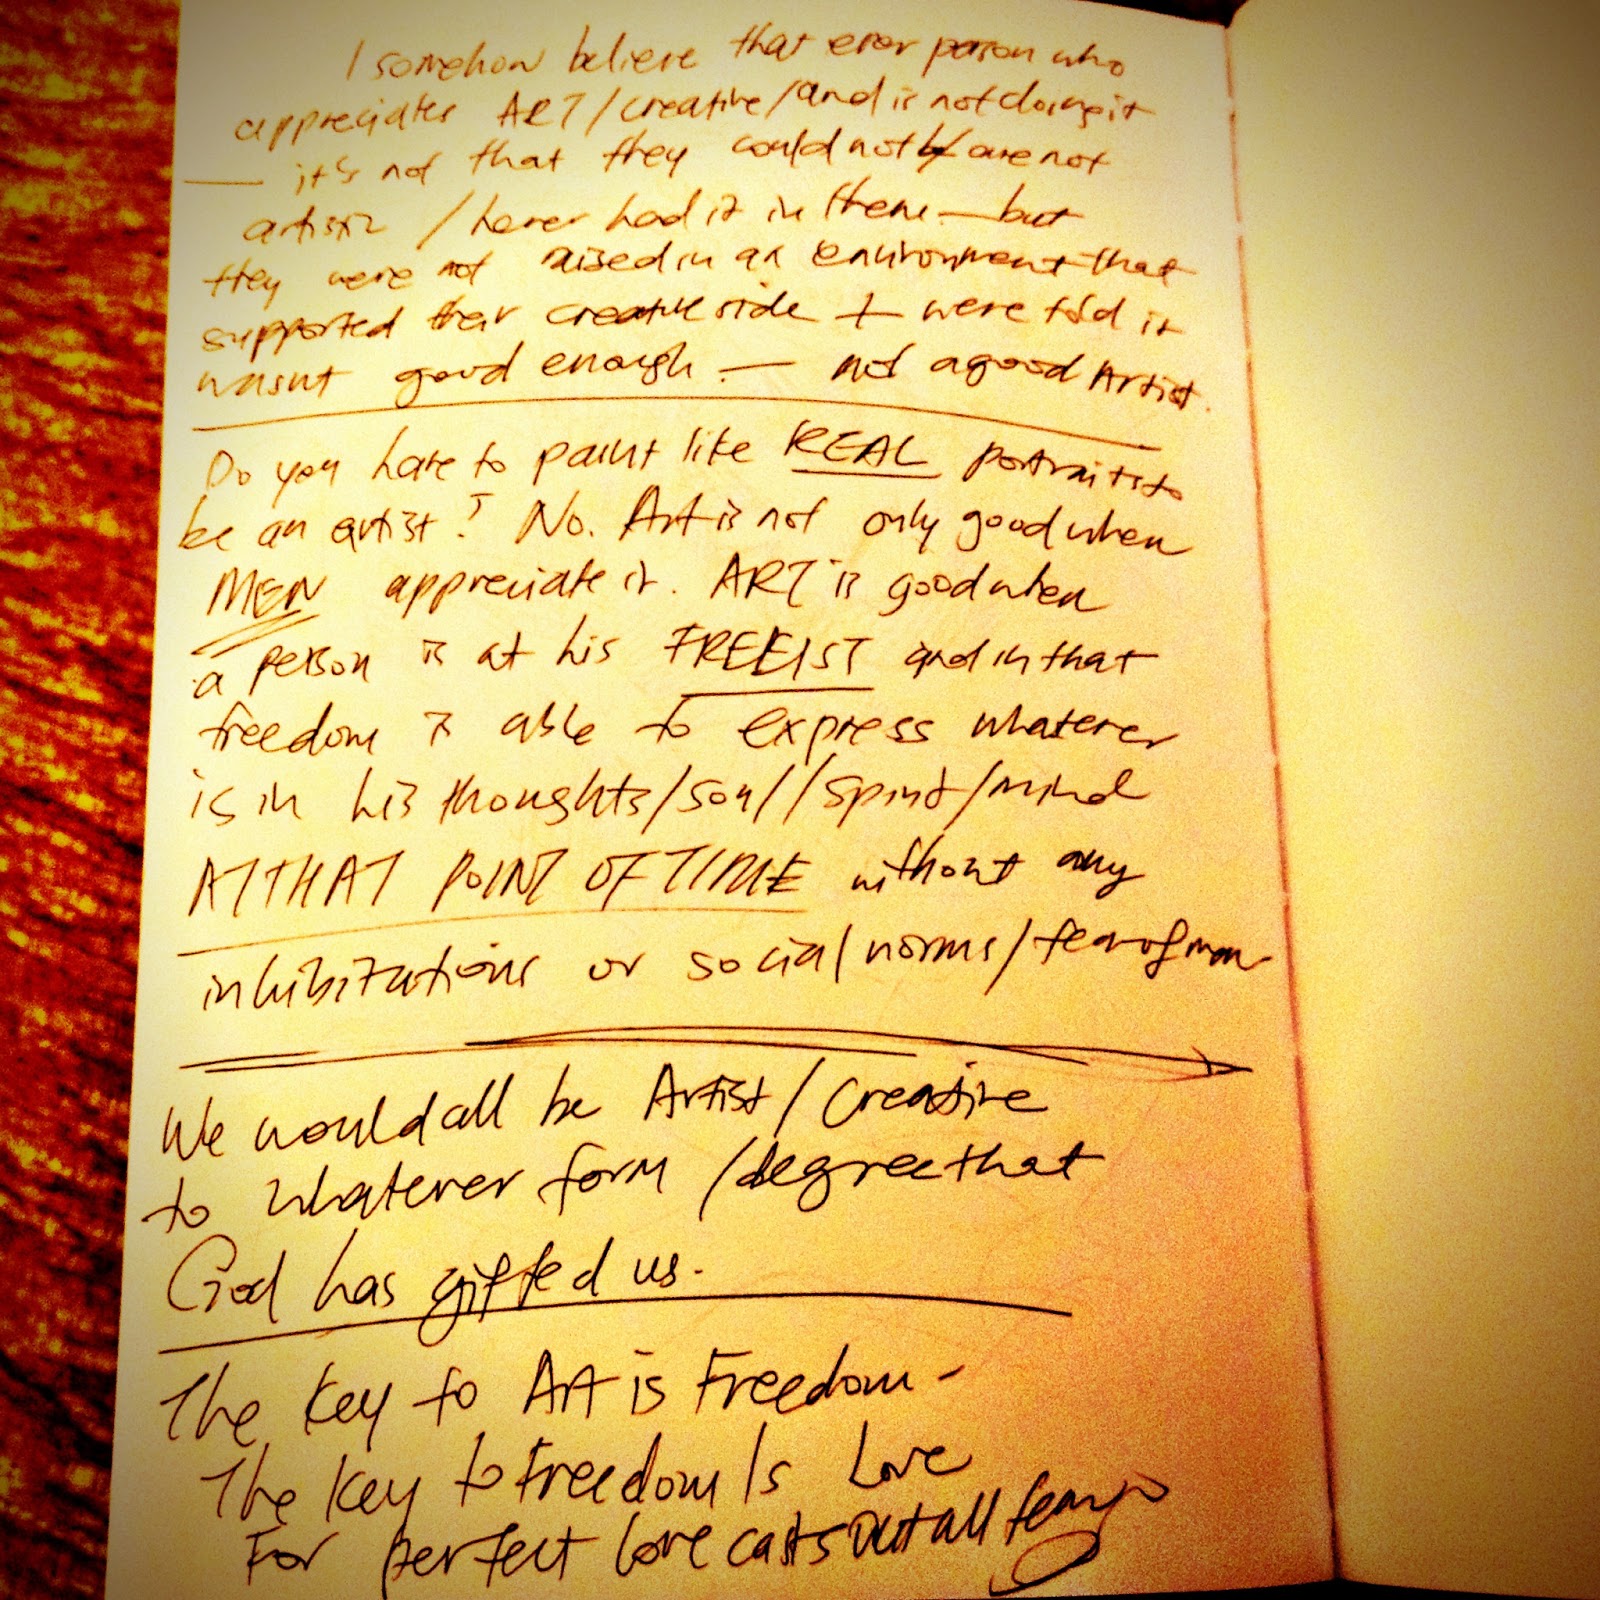 I somehow believe that ever person who
appreciates ART/creative/and is not doing it
— it's not that they could not / are not
artistic / never had it in them — but
they were not raised in an environment that
supported their creative side + were told it
wasnt good enough — not a good Artist.
Do you have to paint like REAL portraits to
be an artist? No. Art is not only good when
MEN appreciate it. ART is good when
a person is at his FREEIST and in that
freedom is able to express whatever
is in his thoughts/soul/spirit/mind
AT THAT POINT OF TIME without any
inhibitations or social norms/fear of man
We would all be Artist/creative
to whatever form/degree that
God has gifted us.
The Key to Art is Freedom -
The Key to Freedom Is Love
For perfect love casts out all fear